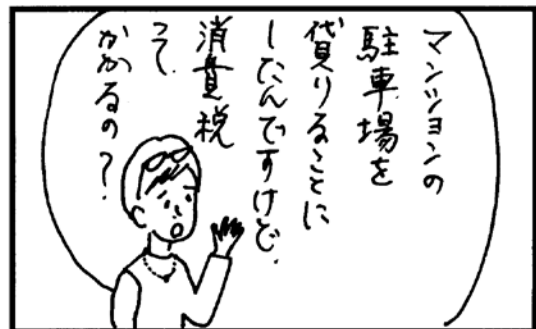 マンションの
駐車場を
貸りることに
したんですけど、
消費税
って
かかるの？